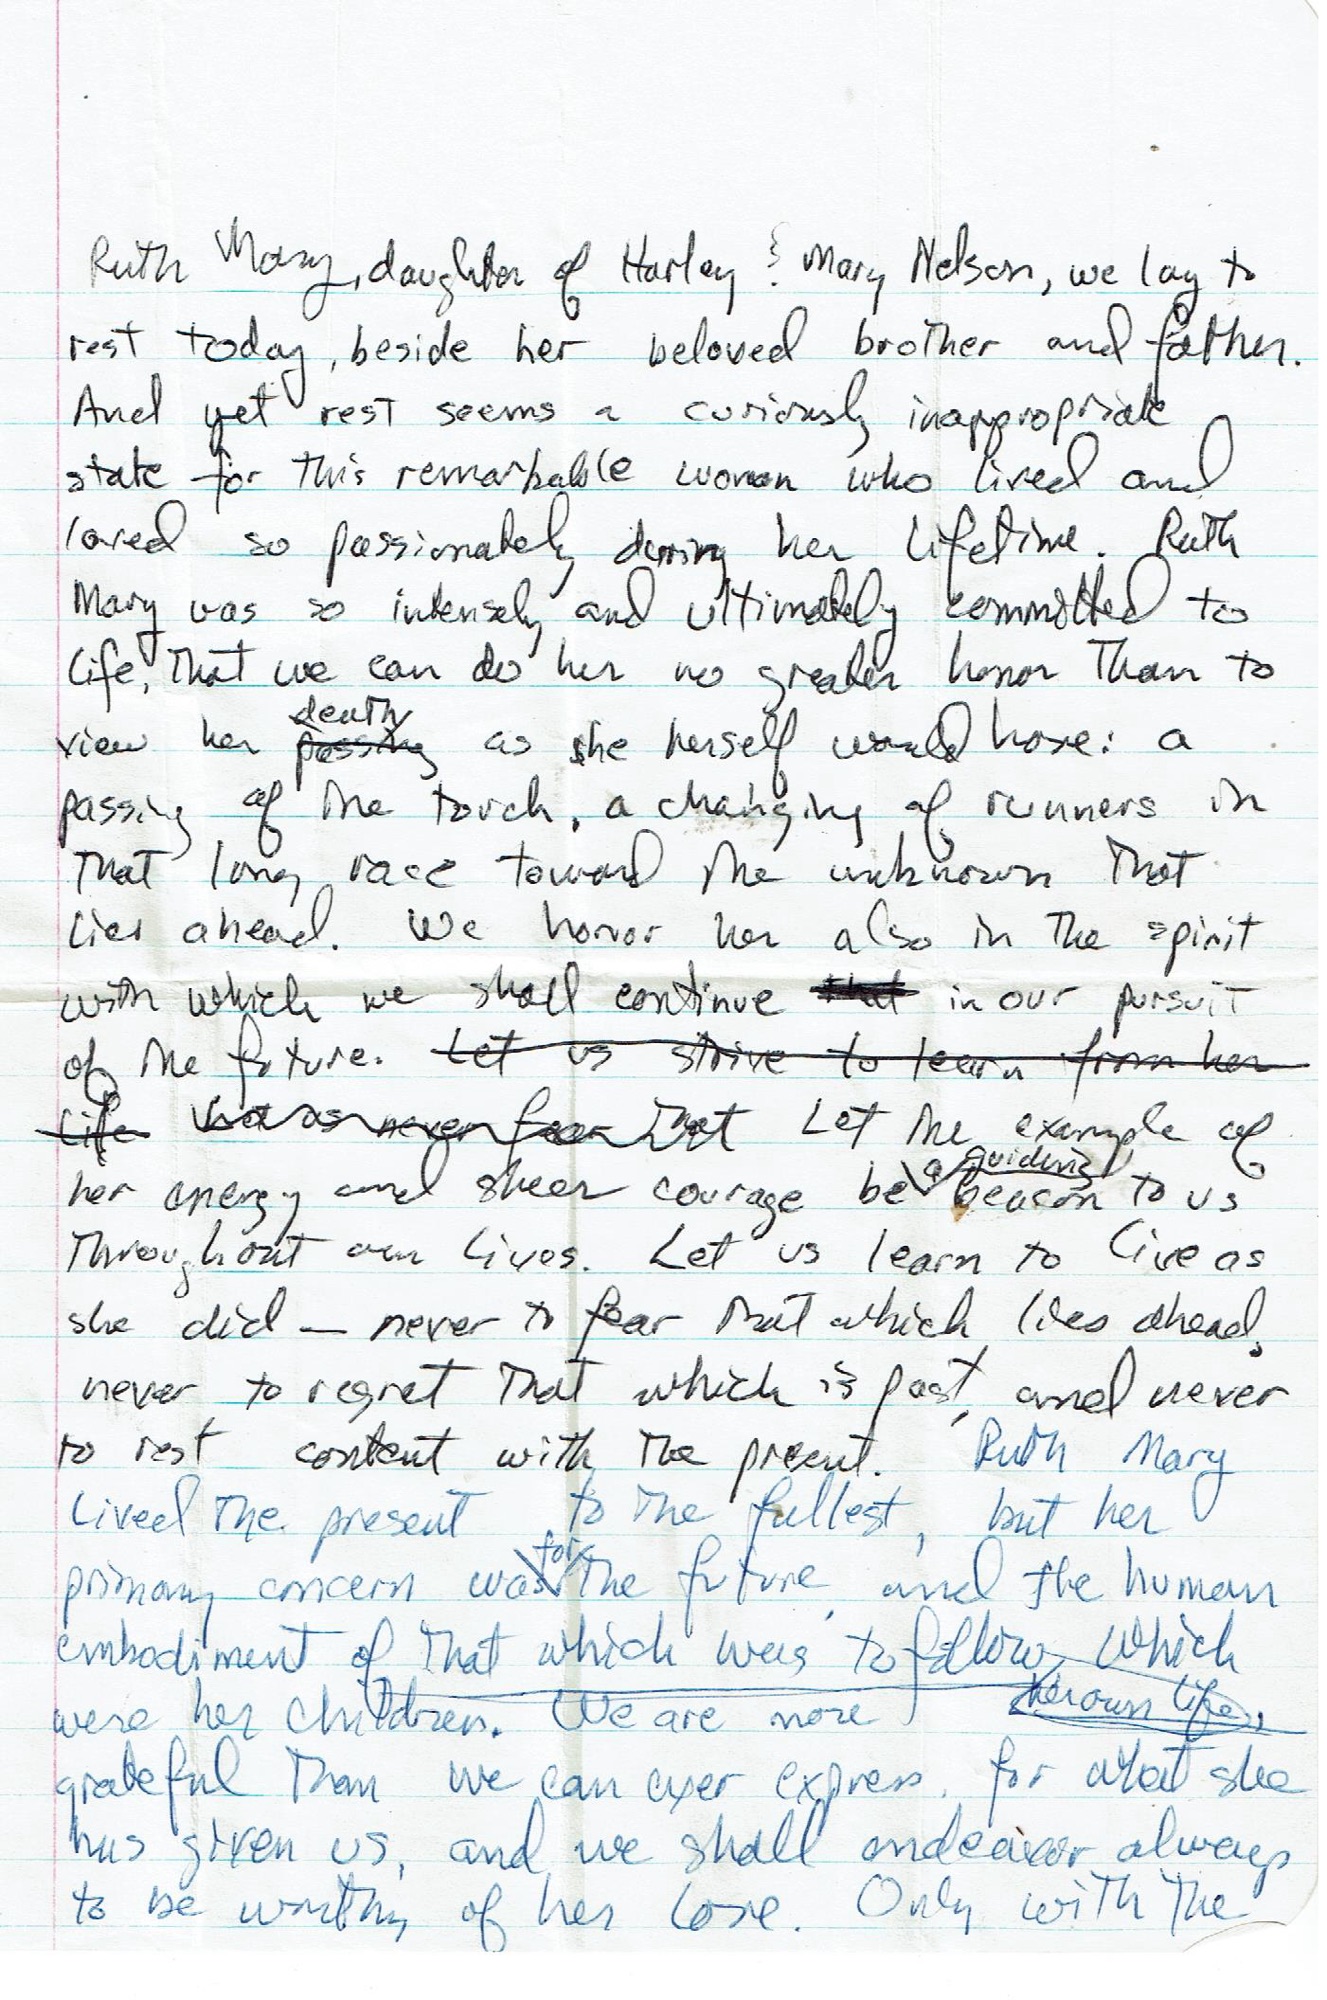 Ruth Mary, daughter of Harley & Mary Nelson, we lay to
rest today, beside her beloved brother and father.
And yet rest seems a curiously inappropriate
state for this remarkable woman who lived and
loved so passionately during her lifetime. Ruth
Mary was so intensely and ultimately committed to
life, that we can do her no greater honor than to
death
view her passing as she herself would have: a
passing of the torch, a changing of runners in
that long race toward the unknown that
lies ahead. We honor her also in the spirit
with which we shall continue that in our pursuit
of the future. Let us strive to learn from her
life never fear that Let the example of
a guiding
her energy and sheer courage be beacon to us
throughout our lives. Let us learn to live as
she did — never to fear that which lies ahead,
never to regret that which is past, and never
to rest content with the present. Ruth Mary
lived the present to the fullest, but her
for
primary concern was the future, and the human
embodiment of that which was to follow, which
her own life,
were her children. We are more
grateful than we can ever express, for what she
has given us, and we shall endeavor always
to be worthy of her love. Only with the